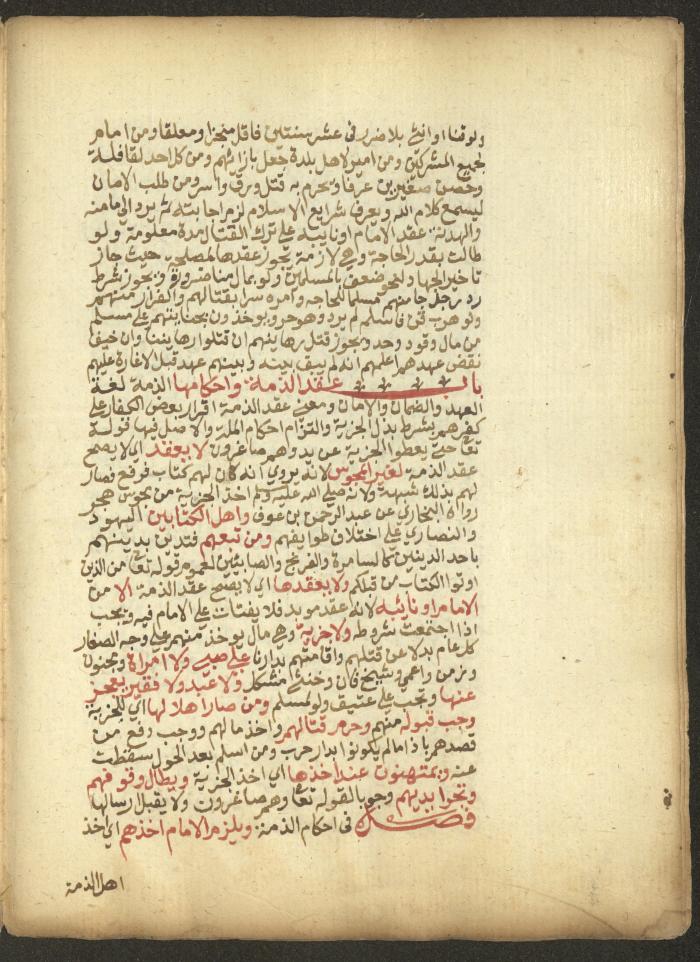 ولو قنا او انثى بلا ضرر في عشر سنين فاقل منجزا ومعلقا ومن امام
لجميع المشركين ومن امير لاهل بلدة جعل بازائهم ومن كل احد لقافلة
وحصن صغيرين عرفا ويحرم به قتل ورق واسر ومن طلب الامان
ليسمع كلام الله ويعرف شرايع الاسلام لزم اجابته ثم يرد الى مامنه
والهدنة عقد الامام او نايبه على ترك القتال مدة معلومة ولو
طالت بقدر الحاجة وهي لازمة يجوز عقدها لمصلحة حيث جاز
تاخير الجهاد لنحو ضعف بالمسلمين ولو بمال منا ضرورة ويجوز شرط
رد رجل جا منهم مسلما للحاجة وامره سرا بقتالهم والفرار منهم
ولو هرب قن فاسلم لم يرد وهو حر ويوخذون بجنايتهم على مسلم
من مال وقود وحد ويجوز قتل رهاينهم ان قتلوا رهايننا وان خيف
نقض عهدهم اعلمهم انه لم يبق بينه وبينهم عهد قبل الاغارة عليهم
باب عقد الذمة واحكامها الذمة لغة
العهد والضمان والامان ومعنى عقد الذمة اقرار بعض الكفار على
كفرهم بشرط بذل الجزية والتزام احكام الملة والاصل فيها قوله
تعا حتى يعطوا الجزية عن يد وهم صاغرون لا يعقد اي لا يصح
عقد الذمة لغير المجوس لانه يروى انه كان لهم كتاب فرفع فصار
لهم بذلك شبهة ولانه صلى الله عليه وسلم اخذ الجزية من مجوس هجر
رواه البخاري عن عبد الرحمن بن عوف واهل الكتابين اليهود
والنصارى على اختلاف طوايفهم ومن تبعهم فتدين بدينهم
باحد الدينين كالسامرة والفرنج والصابئين لعموم قوله تعا من الذين
اوتوا الكتاب من قبلكم ولا يعقدها اي لا يصح عقد الذمة الا من
الامام او نائبه لانه عقد موبد فلا يفتات على الامام فيه ويجب
اذا اجتمعت شروطه ولا جزية وهي مال يوخذ منهم على وجه الصغار
كل عام بدلا عن قتلهم واقامتهم بدارنا على صبي ولا امراة ومجنون
وزمن واعمى وشيخ فان وخنثى مشكل ولا عبد ولا فقير يعجز
عنها وتجب على عتيق ولو لمسلم ومن صار اهلا لها اي للجزية
وجب قبوله منهم وحرم قتالهم واخذ مالهم ووجب دفع من
قصدهم باذا ما لم يكونوا بدار حرب ومن اسلم بعد الحول سقطت
عنه ويمتهنون عند اخذها اي اخذ الجزية ويطال وقوفهم
وتجر ايديهم وجوبا لقوله تعا وهم صاغرون ولا يقبل ارسالها
فصل في احكام الذمة ويلزم الامام اخذهم اي اخذ
اهل الذمة